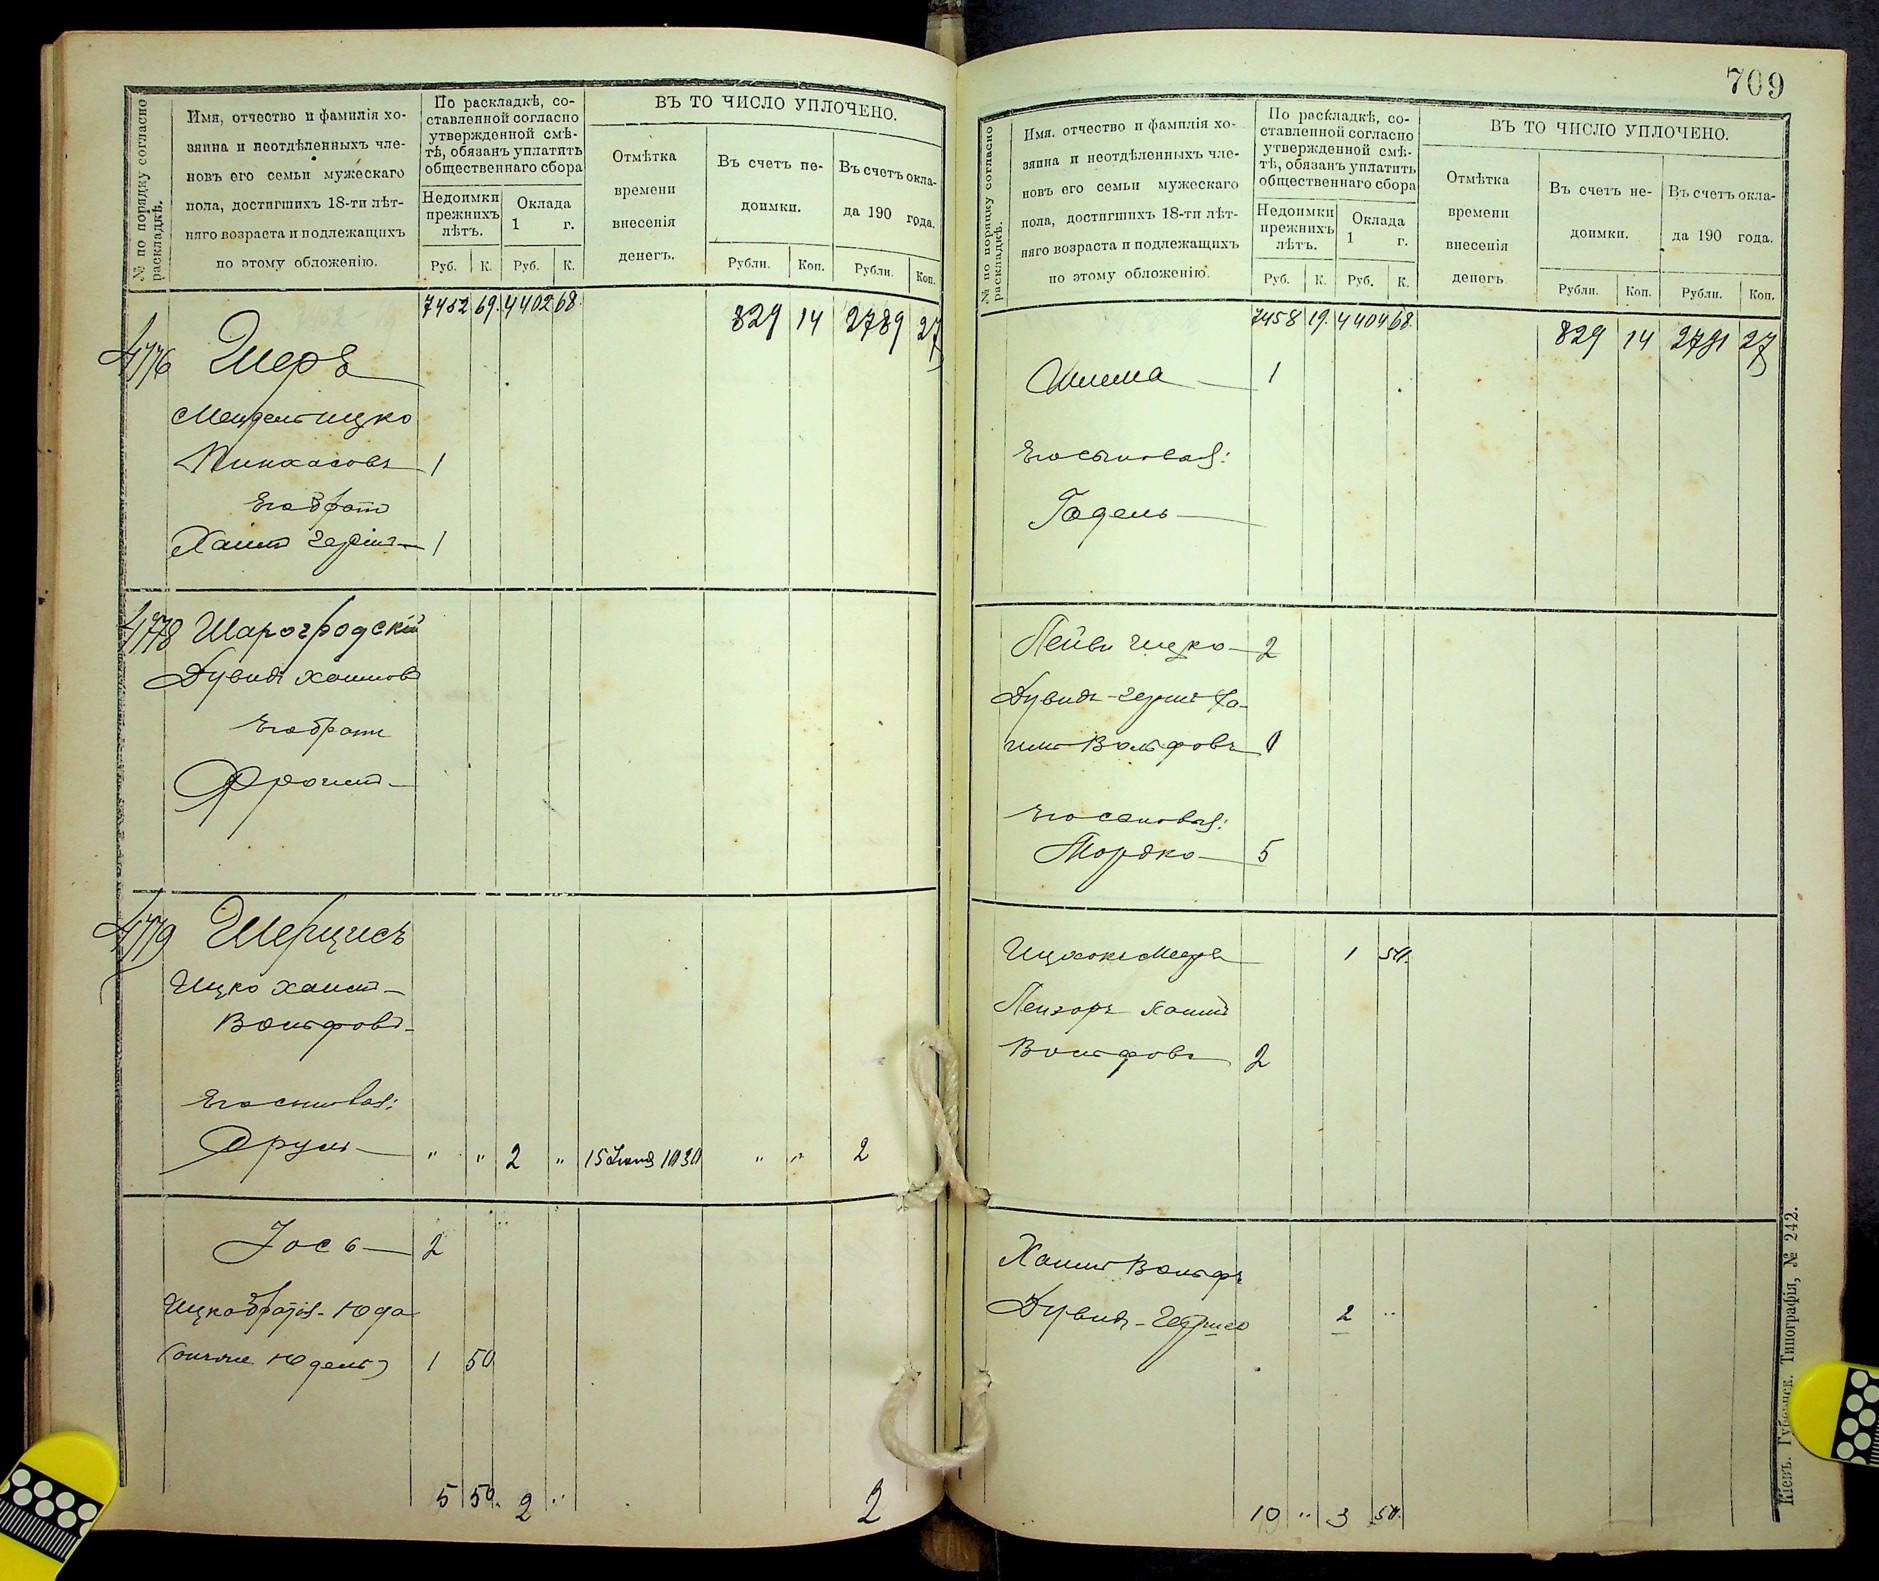 № по порядку согласно раскладкѣ.
Имя, отчество и фамилія хо-
зяина и неотдѣленныхъ чле-
новъ его семьи мужескаго
пола, достигшихъ 18-ти лѣт-
няго возраста и подлежащихъ
по этому обложенію.
По раскладкѣ, со-
ставленной согласно
утвержденной смѣ-
тѣ, обязанъ уплатить
общественнаго сбора
Недоимки
прежнихъ
лѣтъ.
Оклада
1 г.
Руб. К. Руб. К.
ВЪ ТО ЧИСЛО УПЛОЧЕНО.
Отмѣтка
времени
внесенія
денегъ.
Въ счетъ не-
доимки.
Въ счетъ окла-
да 190 года.
Рубли. Коп. Рубли. Коп.
7452 69. 4402 68. 829 14 2789 27
4776 Шеръ
Мендель Ицко
Пинхасовъ 1
Его братъ
Хаимъ Гершъ 1
4778 Шарогродскій
Дувидъ Хаимовъ
Его братъ
Фроимъ
4779 Шерцисъ
Ицко Хаимъ
Вольфовъ
Его сыновья:
Сруль " " 2 " 15 " " 2
Іось 2
Ицка братья Юда
(онъ же Юдель) 1 50
5 50. 2 " 2
709
№ по порядку согласно раскладкѣ.
Имя, отчество и фамилія хо-
зяина и неотдѣленныхъ чле-
новъ его семьи мужескаго
пола, достигшихъ 18-ти лѣт-
няго возраста и подлежащихъ
по этому обложенію.
По раскладкѣ, со-
ставленной согласно
утвержденной смѣ-
тѣ, обязанъ уплатить
общественнаго сбора
Недоимки
прежнихъ
лѣтъ.
Оклада
1 г.
Руб. К. Руб. К.
ВЪ ТО ЧИСЛО УПЛОЧЕНО.
Отмѣтка
времени
внесенія
денегъ
Въ счетъ не-
доимки.
Въ счетъ окла-
да 190 года.
Рубли. Коп. Рубли. Коп.
7458 19. 4404 68. 829 14 2791 27
Шлема 1
Его сыновья:
Годель
Лейви Ицко 2
Дувидъ-Гершъ Ха-
имъ Вольфовъ 1
Его сыновья:
Мордко 5
Ицхокъ Мееръ 1 50.
Лейзоръ Хаимъ
Вольфовъ 2
Хаимъ Вольфъ
Дувидъ-Гершко 2 "
10 " 3 50.
Кіевъ. Губернск. Типографія, № 242.